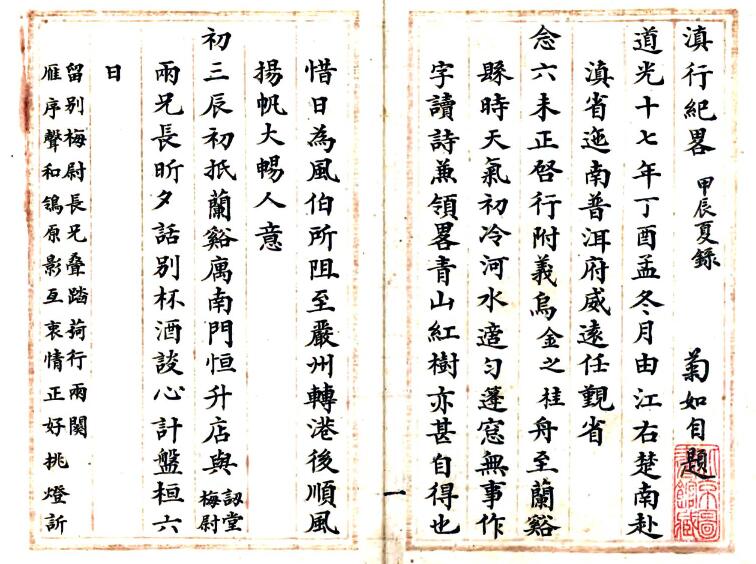 滇行紀畧 甲辰夏錄 菊如自題
道光十七年丁酉孟冬月由江右楚南赴
滇省迤南普洱府威遠任覲省
念六未正啓行附義烏金之桂舟至蘭谿
縣時天氣初冷河水適勻蓬窓無事作
字讀詩兼領畧青山紅樹亦甚自得也
一
惜日為風伯所阻至嚴州轉港後順風
揚帆大暢人意
初三辰初抵蘭谿寓南門恒升店與訒堂梅尉
兩兄長昕夕話別杯酒談心計盤桓六
日
留別梅尉長兄叠踏莎行兩闋
雁序聲和鴒原影互衷情正好挑燈訴